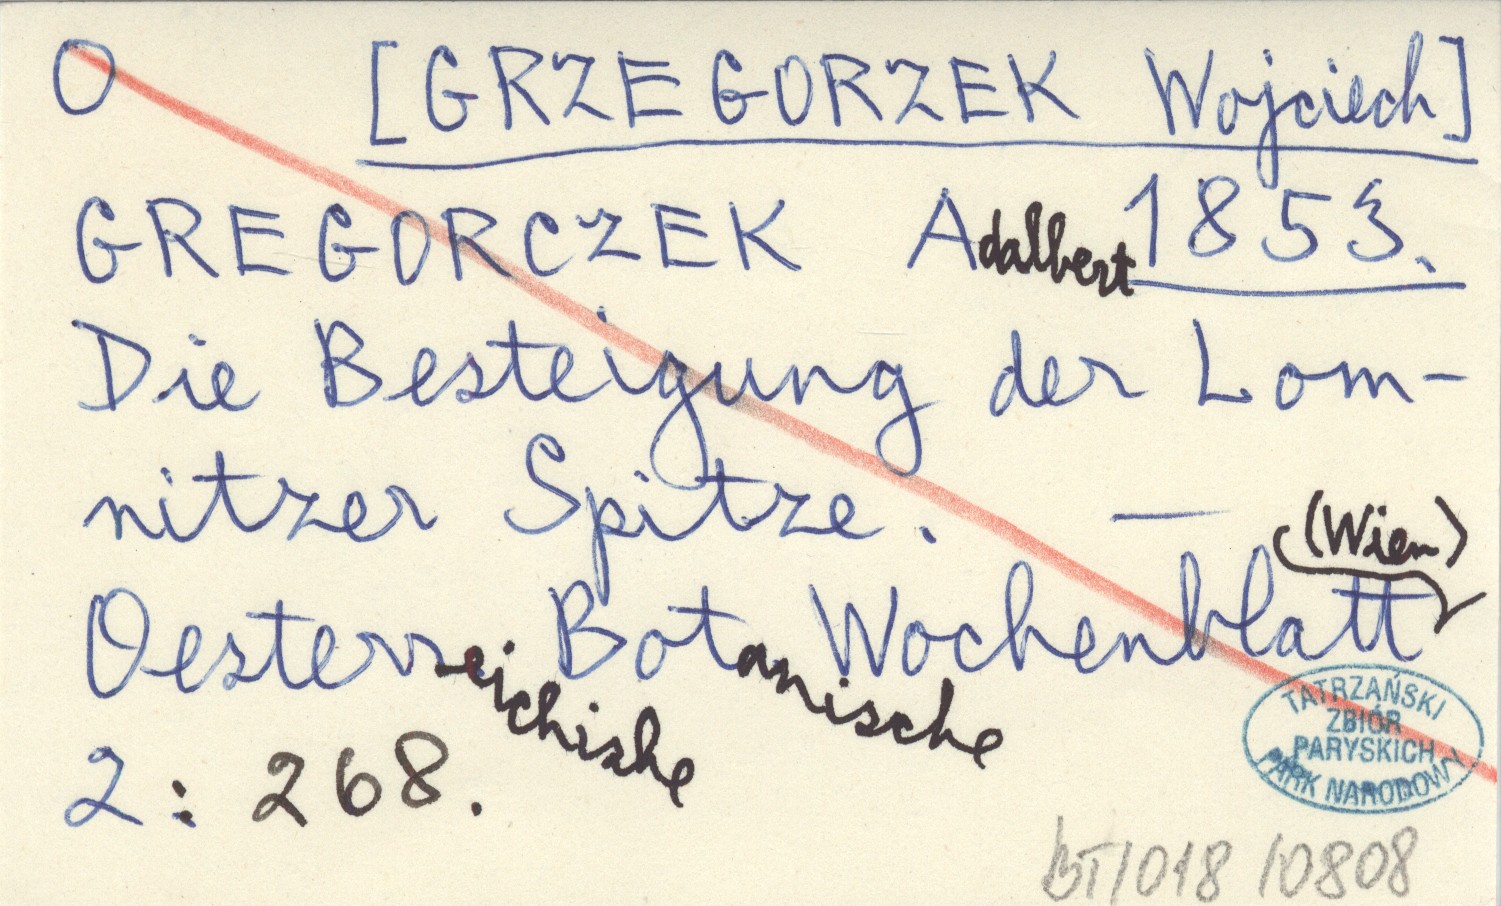 O [GRZEGORZEK Wojciech]
GREGORCZEK Adalbert 1853.
Die Besteigung der Lom-
nitzer Spitze. —
(Wien)
Oesterreichishe Botanische Wochenblatt
2: 268.
TATRZAŃSKI
ZBIÓR
PARYSKICH
PARK NARODOWY
BT/018/0808